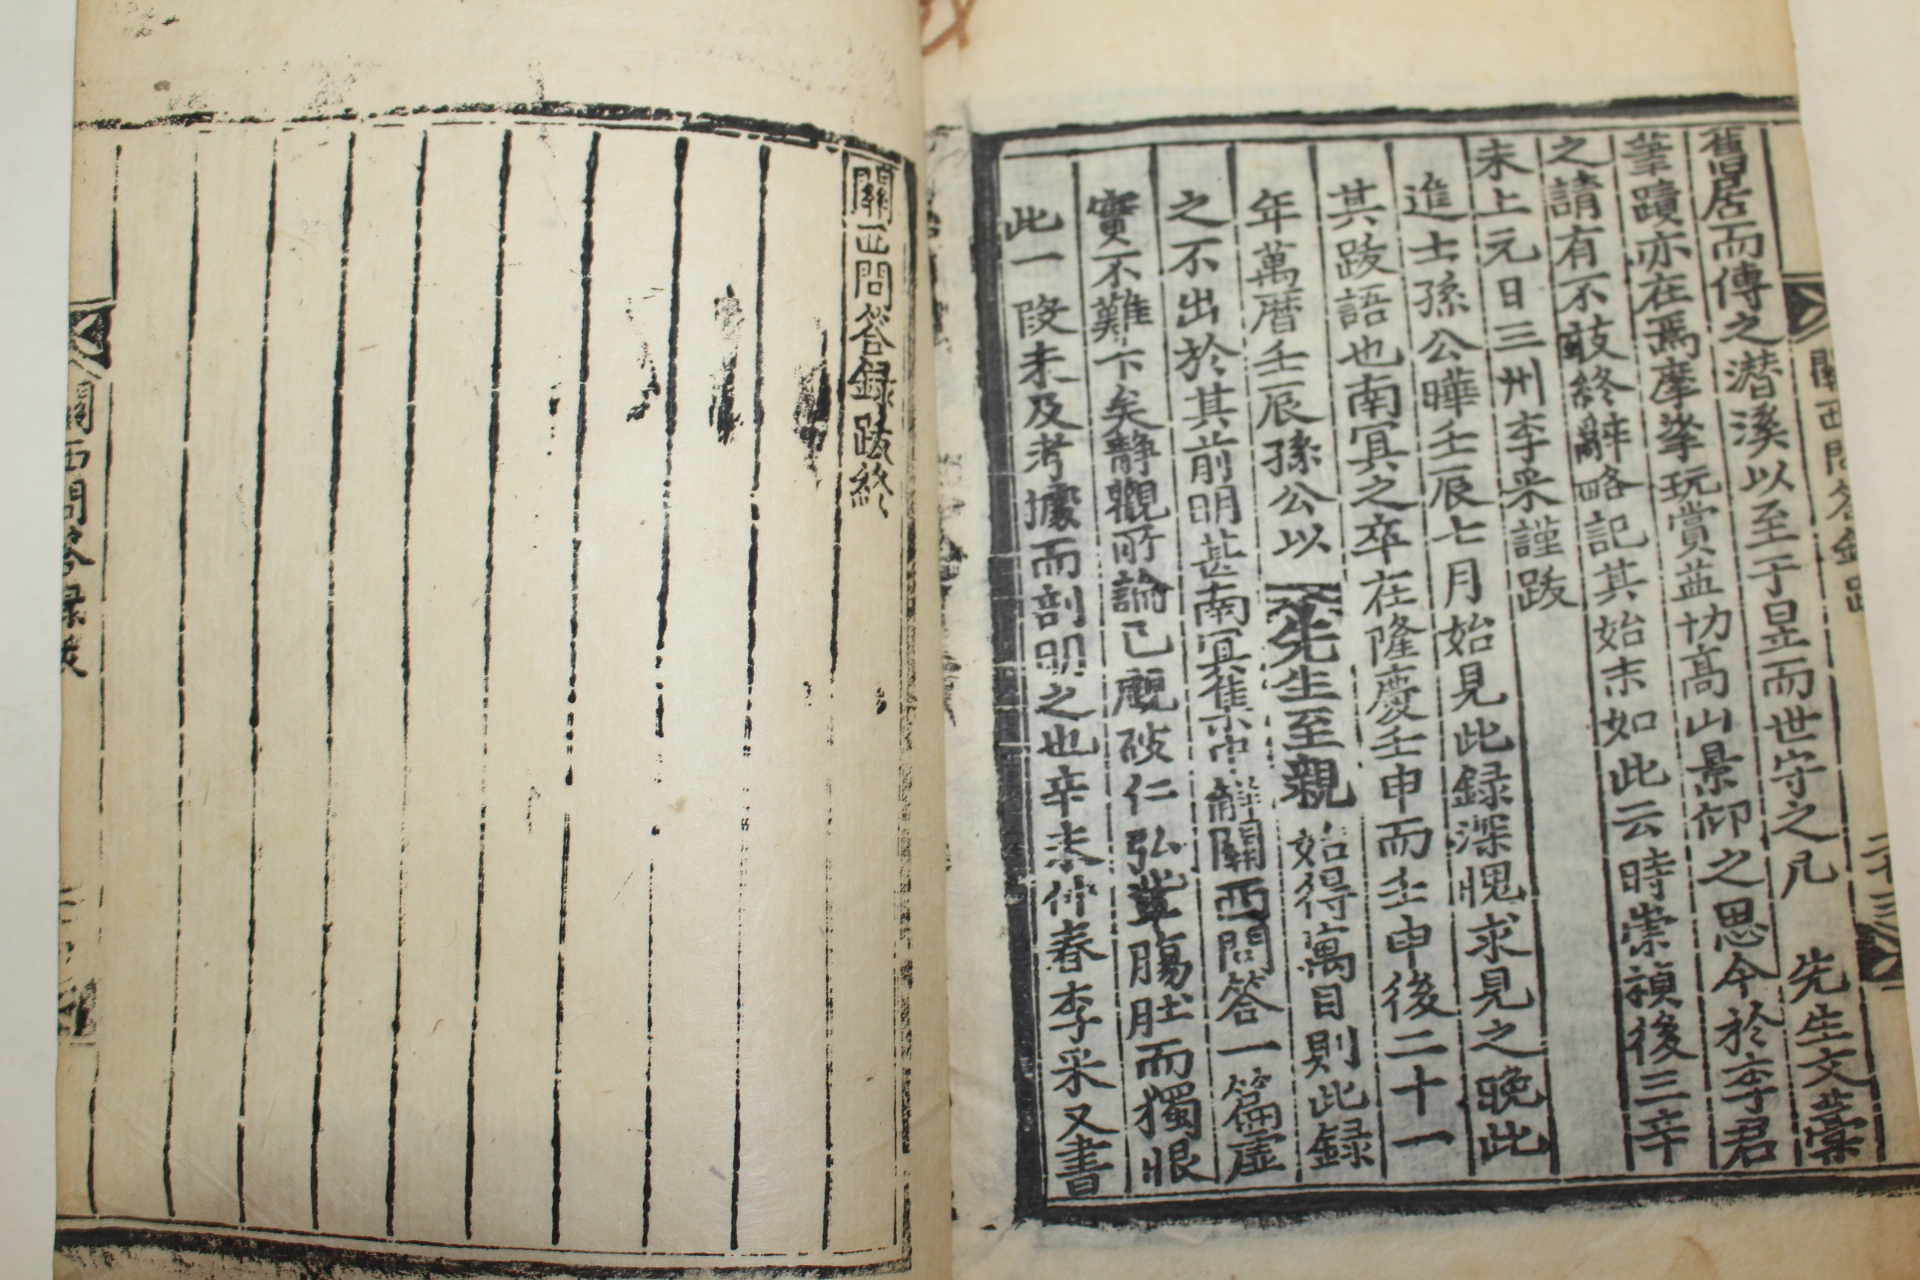 關西問答錄跋
二十三
舊居而傳之潛溪以至于昰而世守之凡 先生文藁
筆蹟亦在焉摩挲玩賞益切高山景仰之思今於李君
之請有不敢終辭略記其始末如此云時崇禎後三辛
未上元日三州李采謹跋
進士孫公曄壬辰七月始見此録深愧求見之晚此
其跋語也南冥之卒在隆慶壬申而壬申後二十一
年萬曆壬辰孫公以 先生至親始得寓目則此録
之不出於其前明甚南冥集中解關西問答一篇虛
實不難卞矣靜觀所論已覷破仁弘輩膓肚而獨恨
此一段未及考據而剖明之也辛未仲春李采又書
關西問答録跋終
關西問答録跋